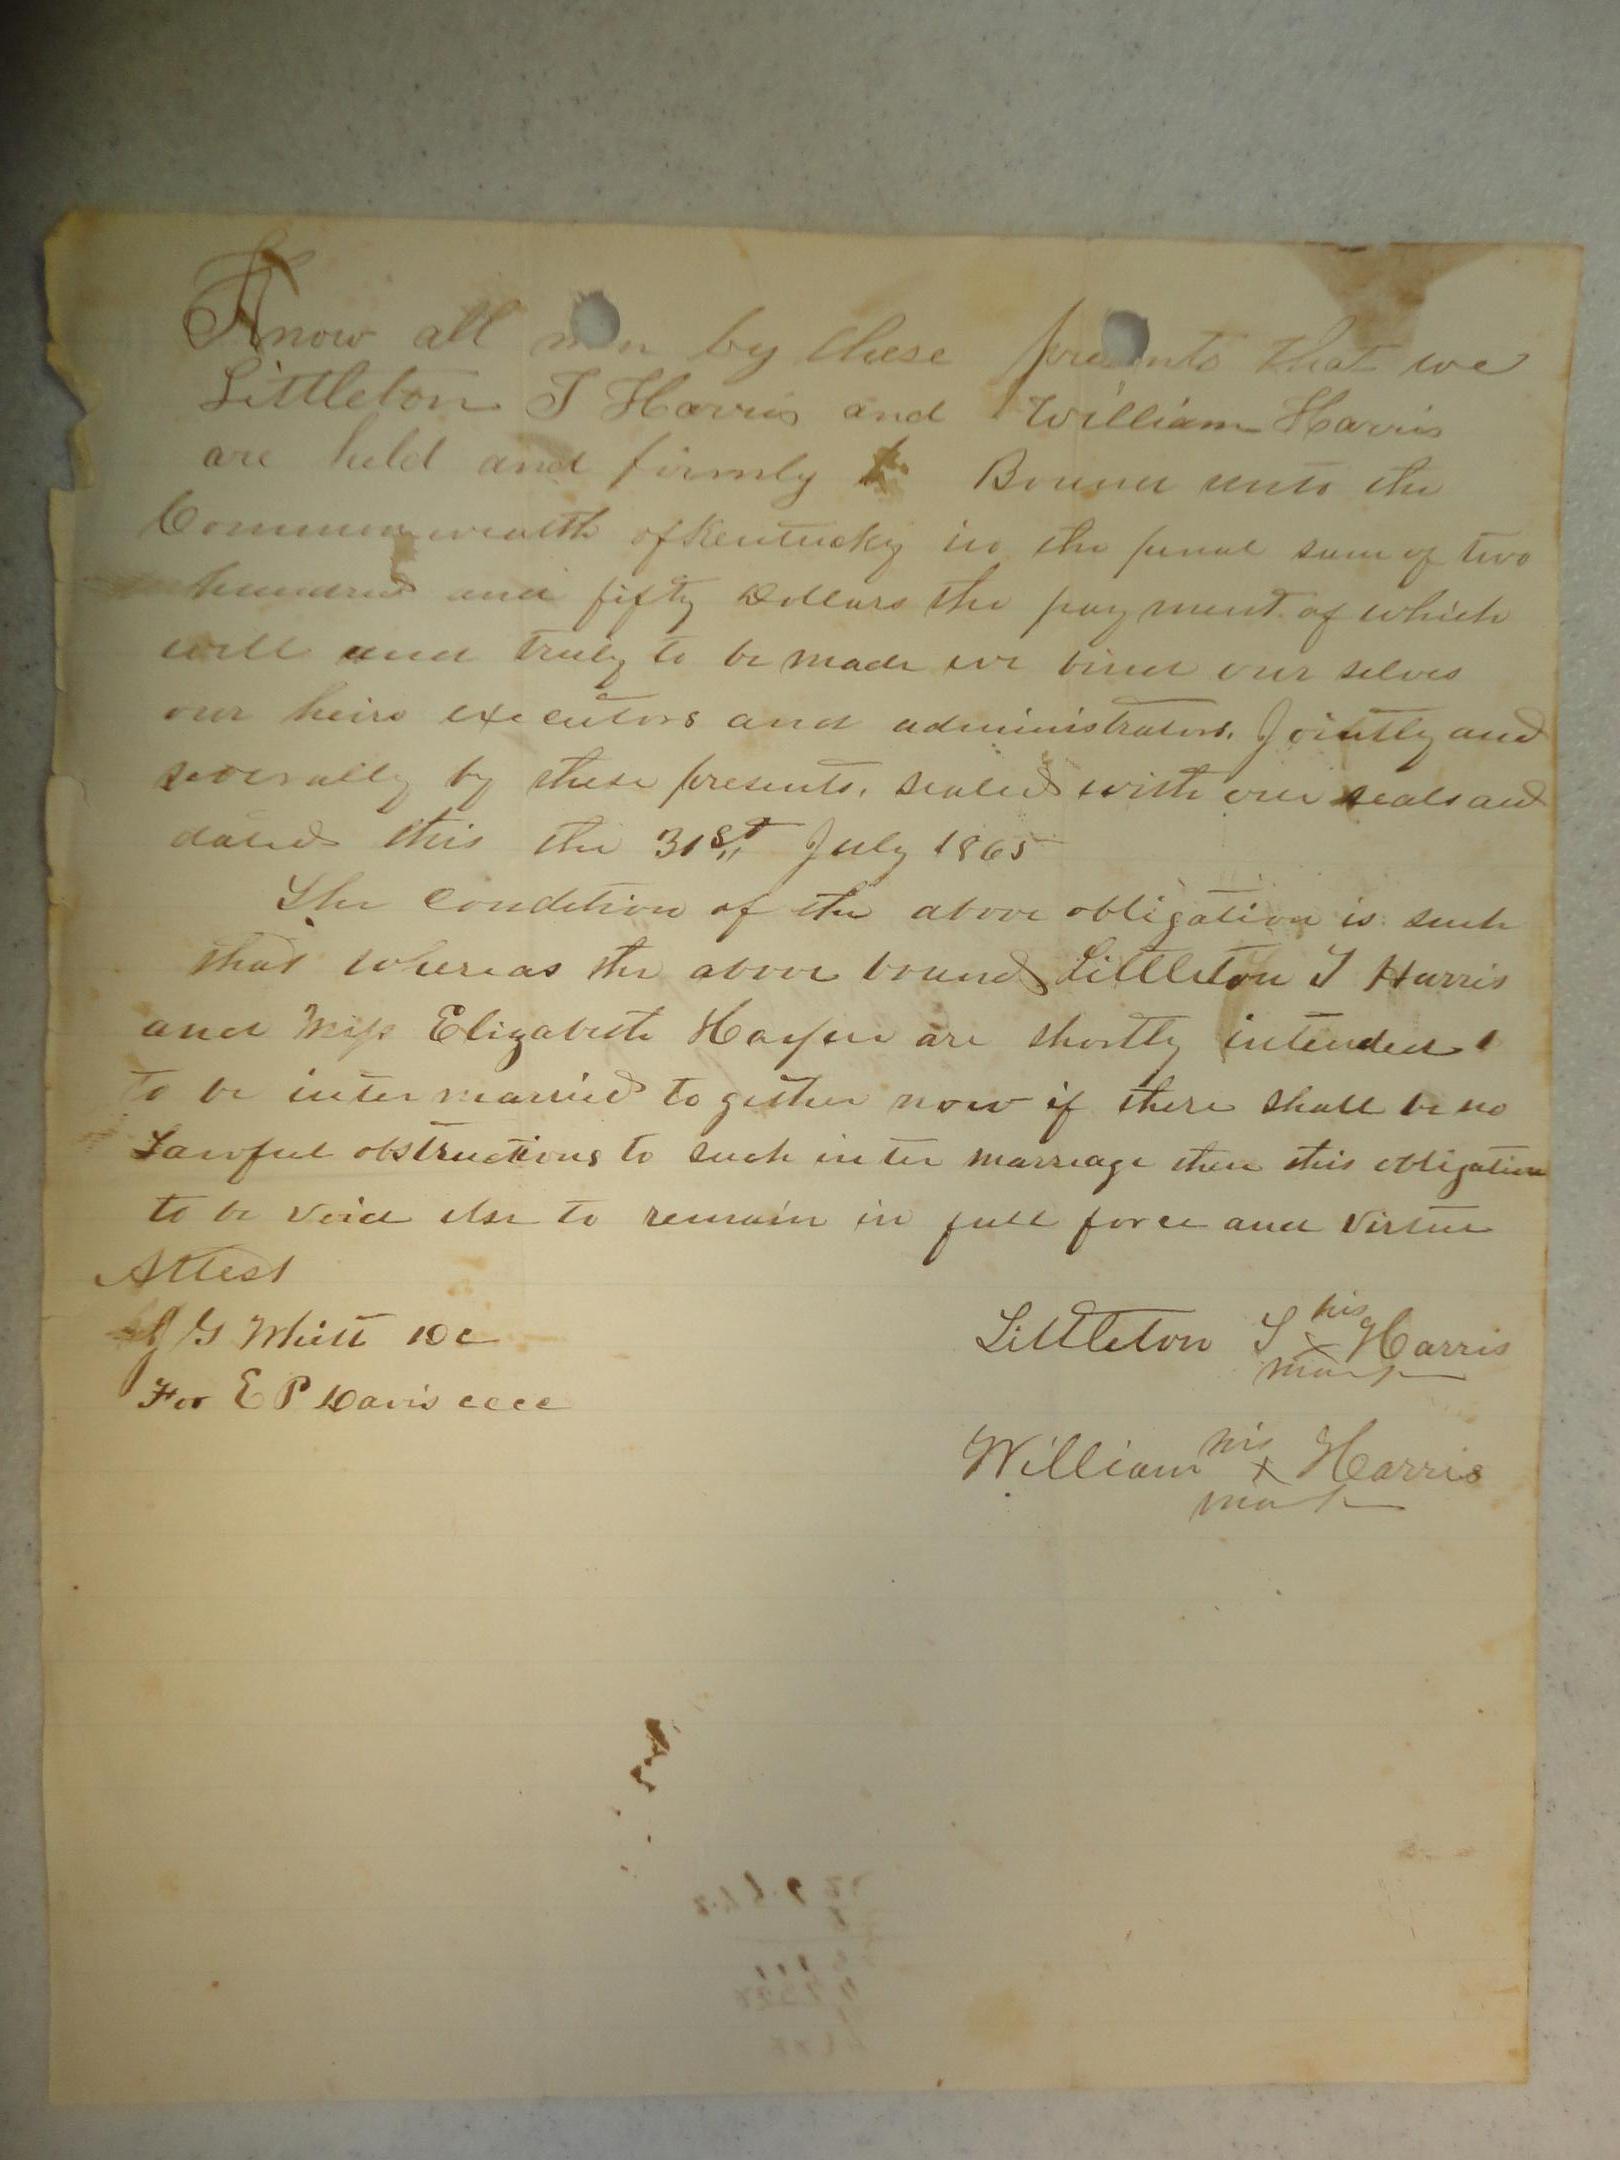 Know all men by these presents that we
Littleton T Harris and William Harris
are held and firmly Bound unto the
Commonwealth of Kentucky in the penal sum of two
hundred and fifty Dollars the payment of which
well and truly to be made we bind our selves
our heirs executors and administrators. Jointly and
severally by these presents, sealed with our seals and
dated this the 31st July 1865
The condition of the above obligation is such
that whereas the above bound Littleton T Harris
and Miss Elizabeth are shortly intended
to be inter married together now if there shall be no
Lawful obstructions to such inter marriage then this obligation
to be void else to remain in full force and virtue
Attest
J G Whitt DC
For E P Davis cccc
Littleton T his x mark Harris
William his x mark Harris